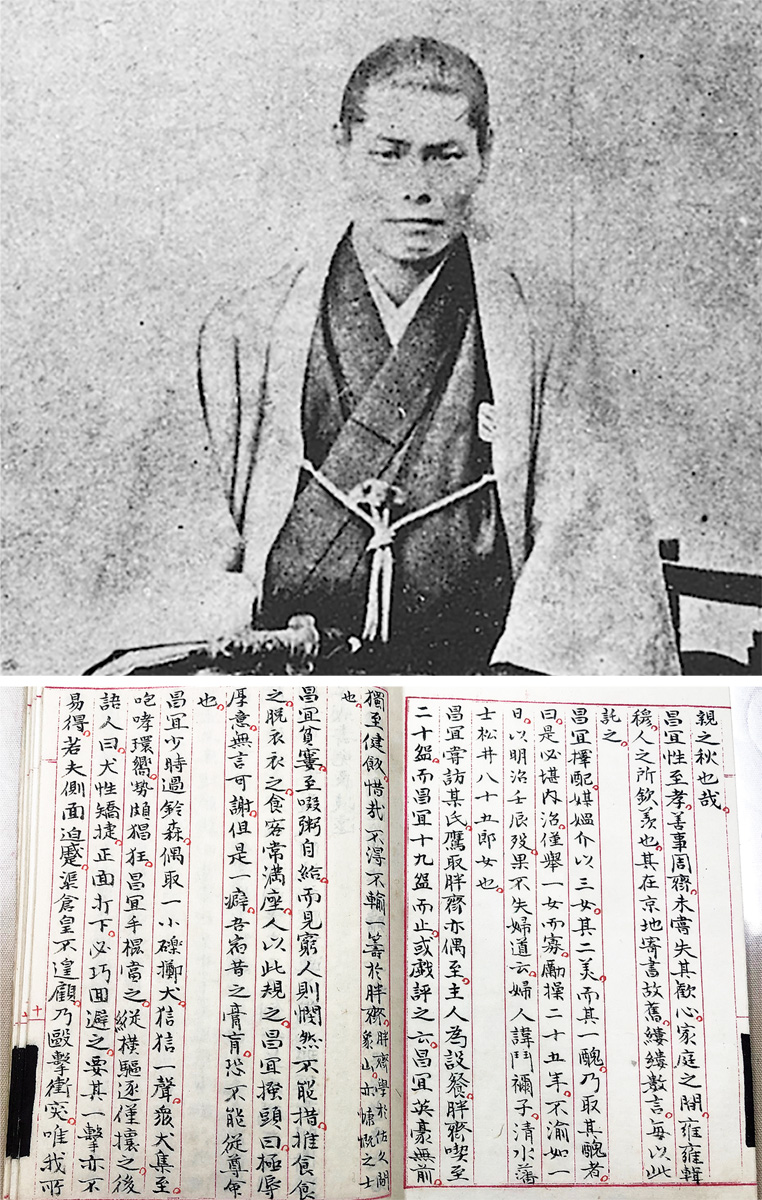 親之秋也哉。
昌宜性至孝。善事周齋。未嘗失其歡心。家庭之間。雍雍輯
穆。人之所欽羨也。其在京地。寄書故舊。縷縷數言。每以此
託之。
昌宜擇配。媒媼介以三女。其二美。而其一醜。乃取其醜者。
曰。是必堪內治。僅舉一女而寡。勵操二十五年。不渝如一
日。以明治壬辰歿。果不失婦道云。婦人諱 禰子。清水藩
士松井八十五郎女也。
昌宜嘗訪某氏。鷹取胖齋亦偶至。主人為設餐。胖齋喫至
二十盌。而昌宜十九盌而止。或戲評之云。昌宜英豪無前。
獨至健飯。惜哉。不得不輸一籌於胖齋。胖齋學於佐久間
象山。亦慷慨之士
也。
昌宜貧窶。至啜粥自給。而見窮人則憫然不能措。推食食
之。脫衣衣之。食客常滿座。人以此規之。昌宜搔頭曰。極辱
厚意。無言可謝。但是一癖。吾宿昔之膏肓。恐不能從尊命
也。
昌宜少時過鈴森。偶取一小礫擲犬。狺狺一聲。衆犬集至。
咆哮環嚮。勢頗猖狂。昌宜手棍當之。縱橫驅逐。僅攘之。後
語人曰。犬性矯捷。正面打下。必巧回避之。要其一擊亦不
易得。若夫側面迫蹙。渠倉皇不遑顧。乃毆擊衝突。唯我所